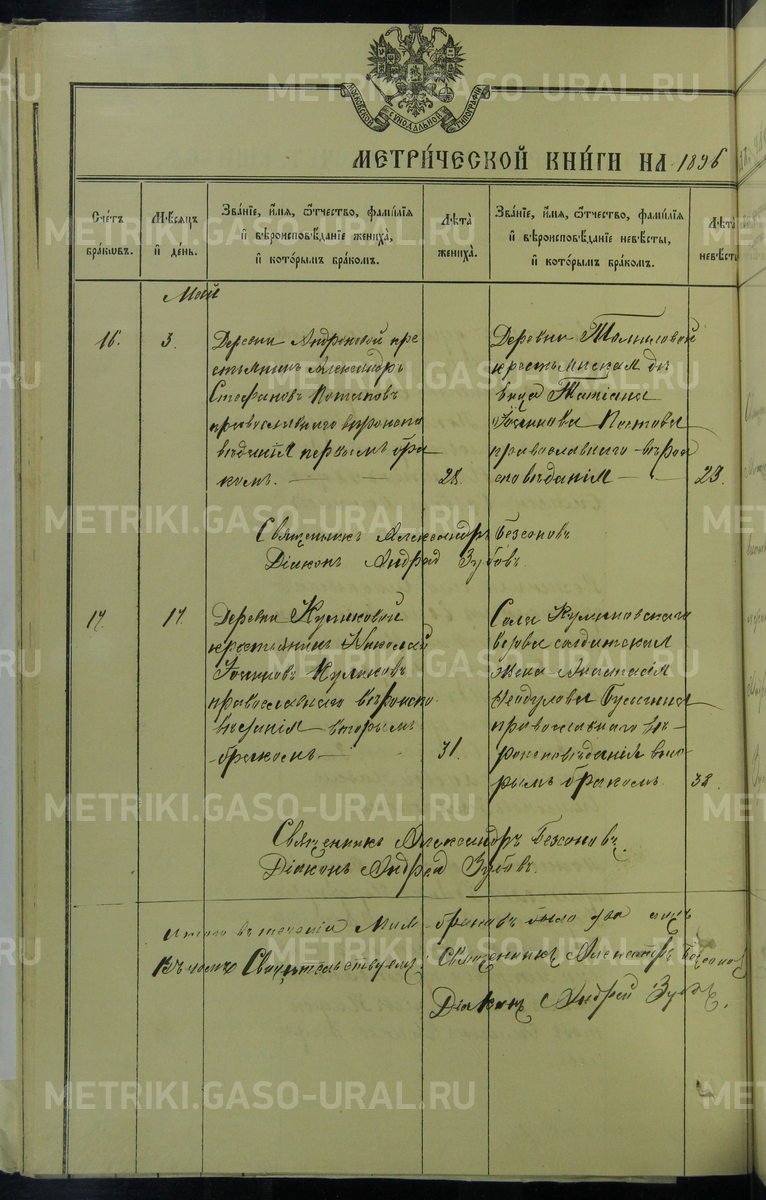 МОСКОВСКОЙ СѴНОДАЛЬНОЙ ТИПОГРАФІИ
МЕТРИ́ЧЕСКОЙ КНИ́ГИ НА 1896
Сче́тъ бра́кωвъ.
Мѣ́сяцъ и҆ де́нь.
Зва́нїе, и҆́мѧ, ѻ҆́тчество, фами́лїѧ
и҆ вѣроисповѣ́данїе жениха̀,
и҆ кото́рымъ бра́комъ.
Лѣ́та жениха̀.
Зва́нїе, и҆́мѧ, ѻ҆́тчество, фами́лїѧ
и҆ вѣроисповѣ́данїе невѣ́сты,
и҆ кото́рымъ бра́комъ.
Лѣ́та невѣ́сты
Май
16. 3.
Деревни Андреевой кре
стьянинъ Александръ
Стефановъ Потаповъ
православнаго вѣроиспо
вѣданія первымъ бра
комъ. 28.
Деревни Томиловой
крестьянская дѣ
вица Татіана
Іоакимова
православнаго вѣроис
повѣданія 23.
Священникъ Александръ Безсоновъ
Діаконъ Андрей Зубовъ.
17. 17.
Деревни Куликовой
крестьянинъ Николай
Іоакимовъ Куликовъ
православнаго вѣроиспо
вѣданія вторымъ
бракомъ 31.
Села Куликовскаго
вдова солдатская
жена Анастасія
Ѳеодулова
православнаго вѣ-
роисповѣданія вто-
рымъ бракомъ. 38.
Священникъ Александръ Безсоновъ.
Діаконъ Андрей Зубовъ.
Итого въ теченіи Мая браковъ было два
Въ чемъ Свидѣтельствуемъ: Священникъ Александръ Безсонов
Діаконъ Андрей Зубовъ.
METRIKI.GASO-URAL.RU